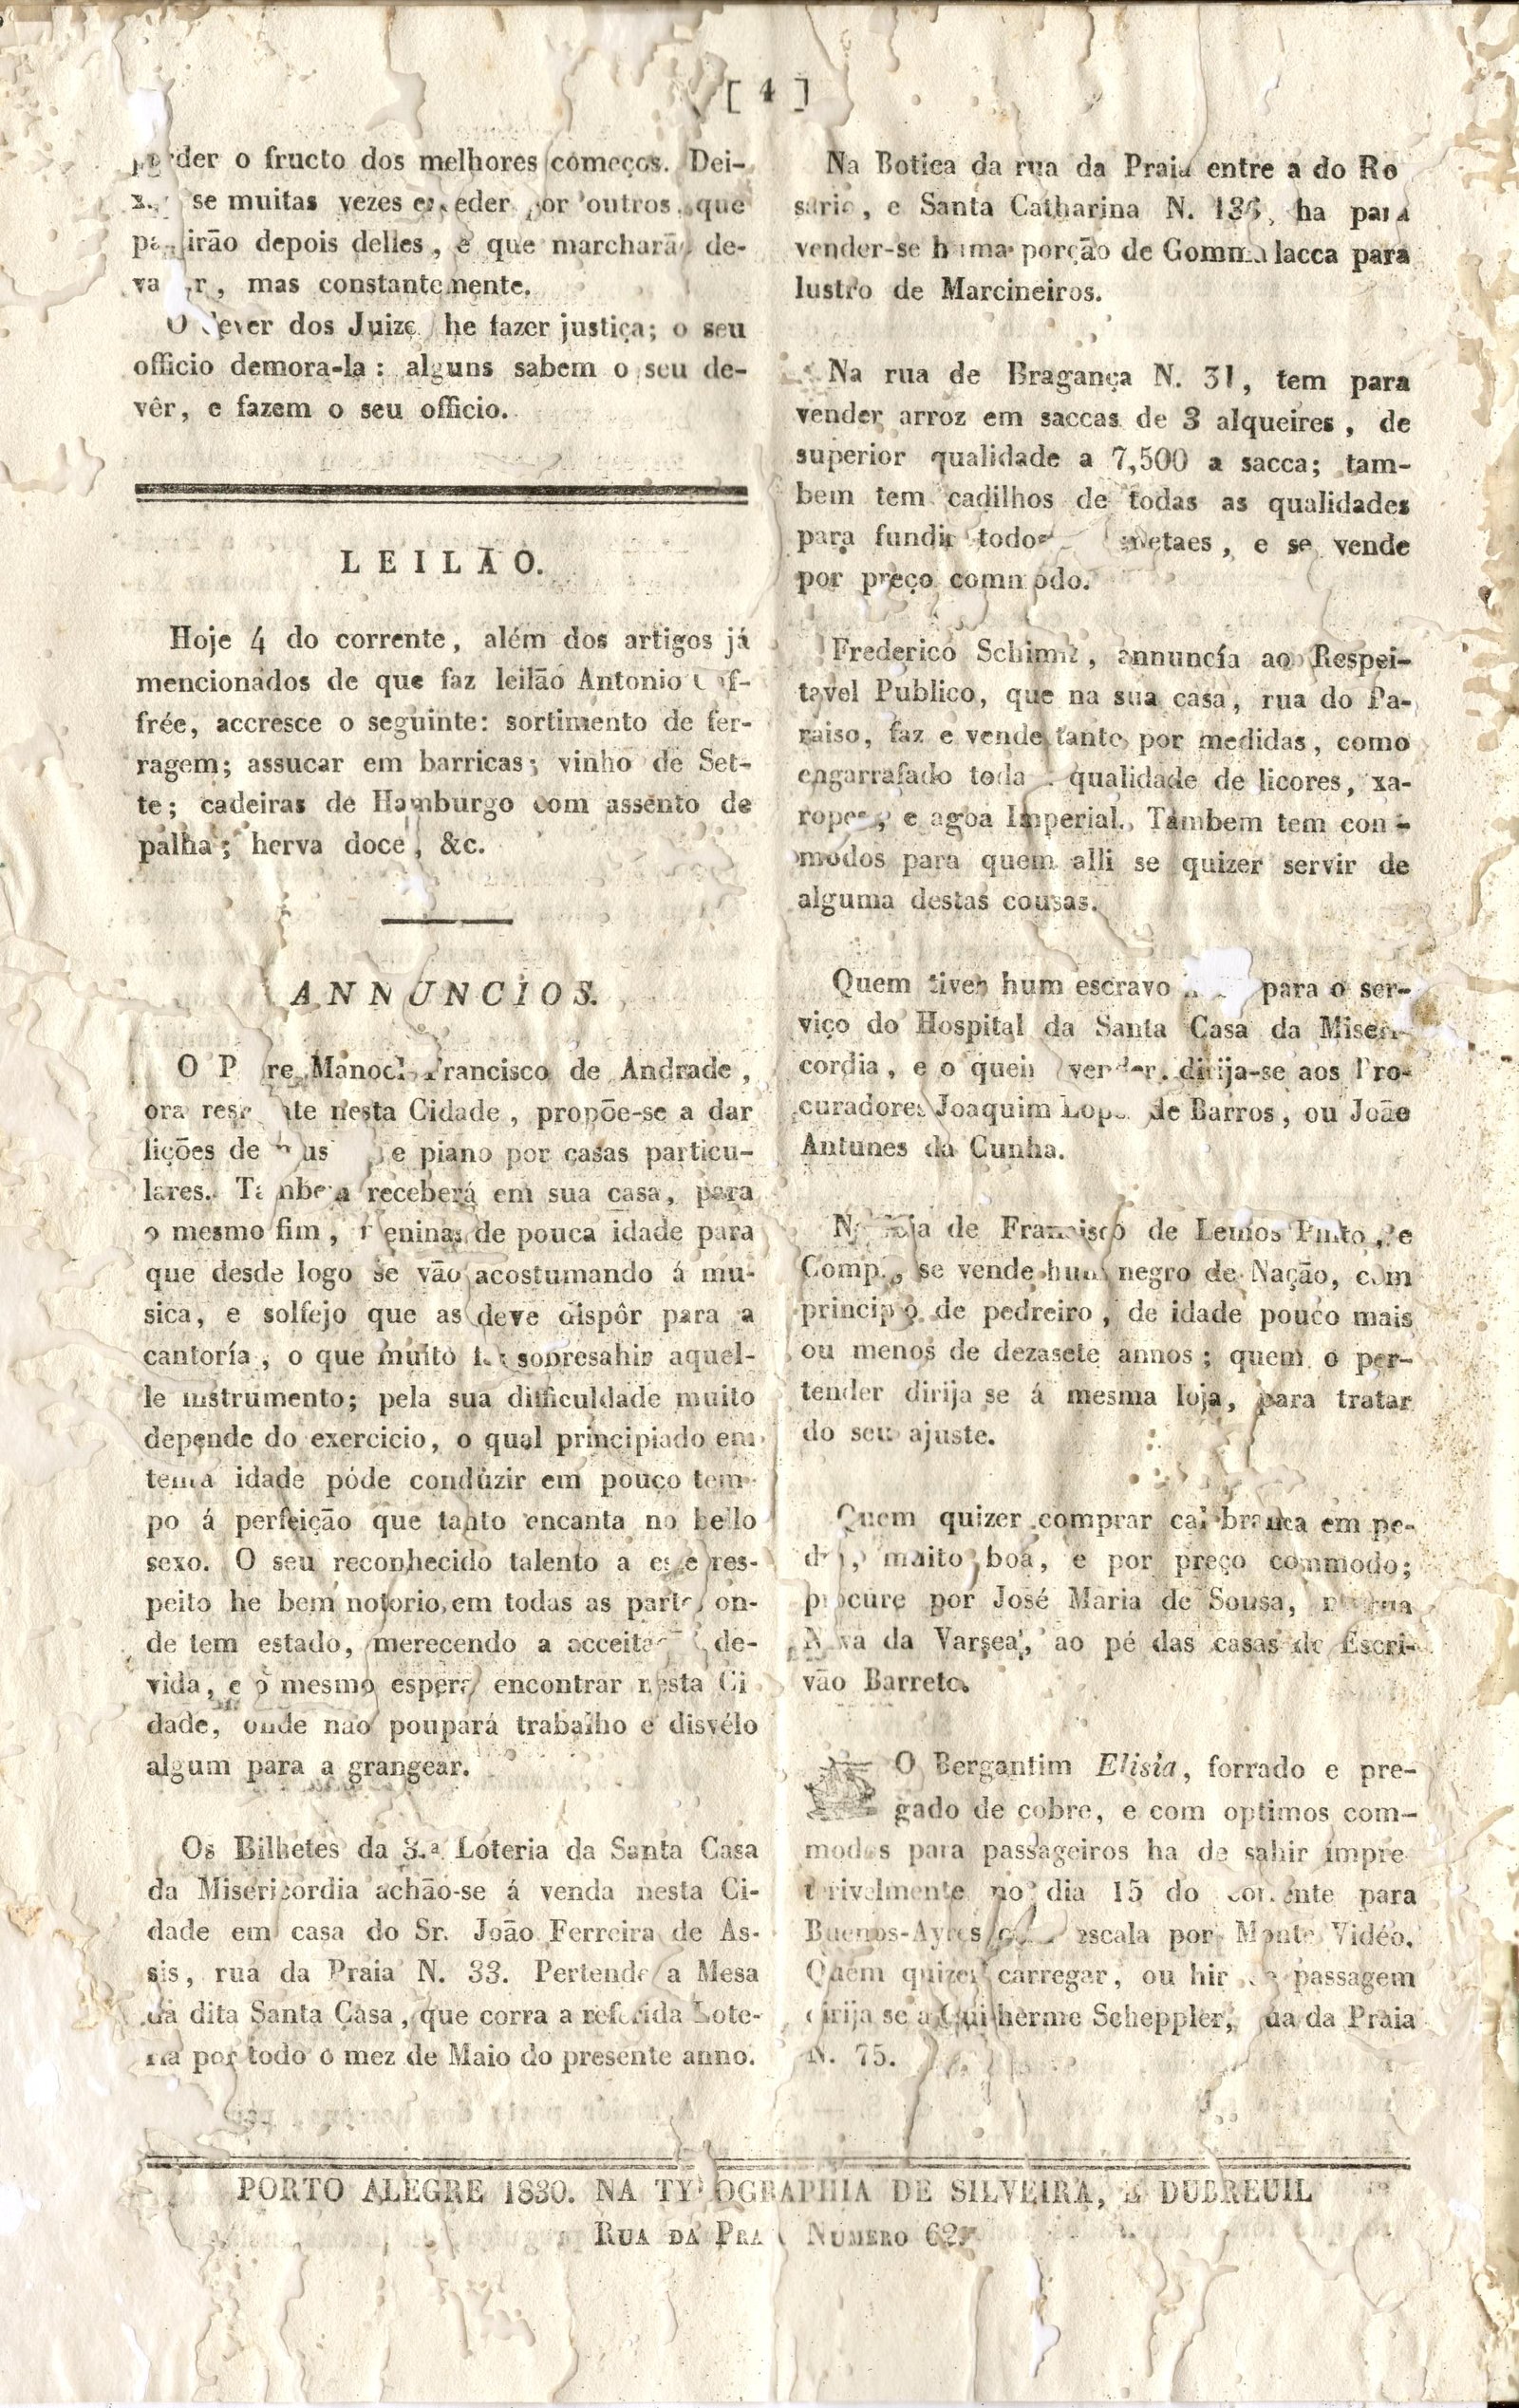 [ 4 ]
perder o fructo dos melhores começos. Dei-
se muitas vezes exceder por outros, que
partirão depois delles, e que marcharão de-
vagar, mas constantemente.
O dever dos Juizes he fazer justiça; o seu
officio demora-la: alguns sabem o seu de-
vêr, e fazem o seu officio.
LEILÃO.
Hoje 4 do corrente, além dos artigos já
mencionados de que faz leilão Antonio
frée, accresce o seguinte: sortimento de fer-
ragem; assucar em barricas; vinho de Set-
te; cadeiras de Hamburgo com assento de
palha; herva doce, &c.
ANNUNCIOS.
O Padre Manoel Francisco de Andrade,
ora residente nesta Cidade, propõe-se a dar
lições de musica e piano por casas particu-
lares. Tambem receberá em sua casa, para
o mesmo fim, meninas de pouca idade para
que desde logo se vão acostumando á mu-
sica, e solfejo que as deve dispôr para a
cantoría, o que muito faz sobresahir aquel-
le instrumento; pela sua difficuldade muito
depende do exercicio, o qual principiado em
tenra idade póde conduzir em pouco tem-
po á perfeição que tanto encanta no bello
sexo. O seu reconhecido talento a este res-
peito he bem notorio em todas as partes on-
de tem estado, merecendo a acceitação de-
vida, e o mesmo espera encontrar nesta Ci
dade, onde nao poupará trabalho e disvélo
algum para a grangear.
Os Bilhetes da 3.ª Loteria da Santa Casa
da Misericordia achão-se á venda nesta Ci-
dade em casa do Sr. João Ferreira de As-
sis, rua da Praia N. 33. Pertende a Mesa
da dita Santa Casa, que corra a referida Lote-
ria por todo o mez de Maio do presente anno.
Na Botica da rua da Praia entre a do Ro
sario, e Santa Catharina N. 136, ha para
vender-se huma porção de Gomma lacca para
lustro de Marcineiros.
Na rua de Bragança N. 31, tem para
vender arroz em saccas de 3 alqueires, de
superior qualidade a 7,500 a sacca; tam-
bem tem cadilhos de todas as qualidades
para fundir todos metaes, e se vende
por preço commodo.
Frederico Schimit, annuncía ao Respei-
tavel Publico, que na sua casa, rua do Pa-
raiso, faz e vende tanto por medidas, como
engarrafado toda a qualidade de licores, xa-
ropes, e agoa Imperial. Tambem tem con-
modos para quem alli se quizer servir de
alguma destas cousas.
Quem tiver hum escravo para o ser-
viço do Hospital da Santa Casa da Miseri-
cordia, e o queira vender, dirija-se aos Pro-
curadores Joaquim Lopes de Barros, ou João
Antunes da Cunha.
Na loja de Francisco de Lemos Pinto, e
Comp., se vende hum negro de Nação, com
principio de pedreiro, de idade pouco mais
ou menos de dezasete annos; quem o per-
tender dirija se á mesma loja, para tratar
do seu ajuste.
Quem quizer comprar cal branca em pe-
dra, muito boa, e por preço commodo;
procure por José Maria de Sousa, na rua
Nova da Varsea, ao pé das casas do Escri-
vão Barreto.
O Bergantim Elisia, forrado e pre-
gado de cobre, e com optimos com-
modos para passageiros ha de sahir impre
terivelmente no dia 15 do corrente para
Buenos-Ayres com escala por Monte Vidéo.
Quem quizer carregar, ou hir de passagem
dirija se a Guilherme Scheppler, rua da Praia
N. 75.
PORTO ALEGRE 1830. NA TYPOGRAPHIA DE SILVEIRA, E DUBREUIL
RUA DA PRAIA NUMERO 62.